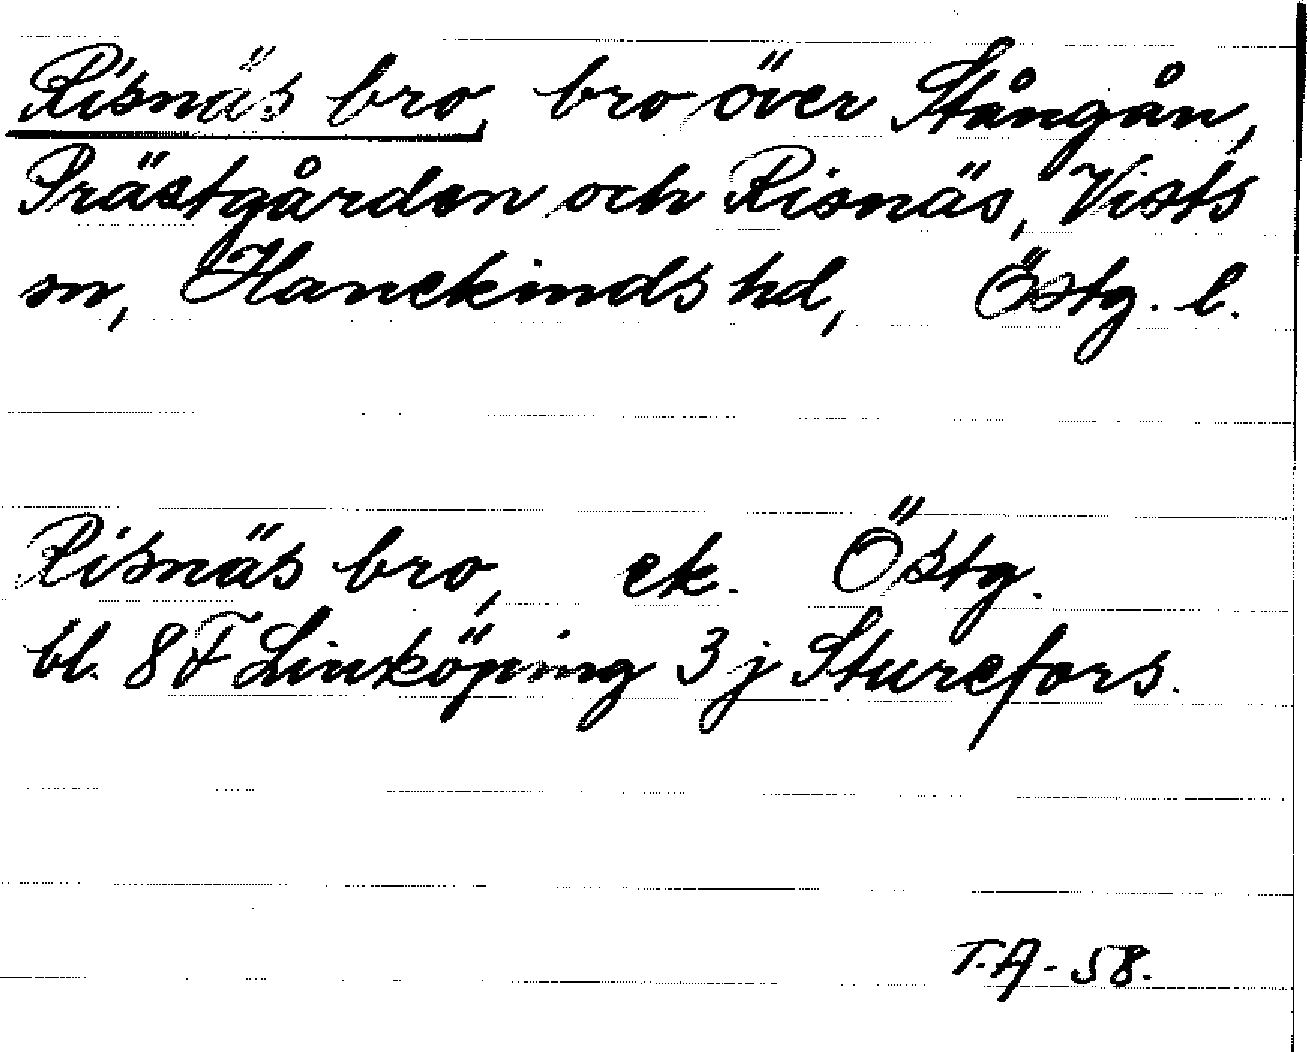 Risnäs bro, bro över Stångån,
Prästgården och Risnäs, Vists
sn, Hanekinds hd, Östg. l.
Risnäs bro, ek. Östg.
bl. 8 F Linköping 3 j Sturefors.
T.A. - 58.